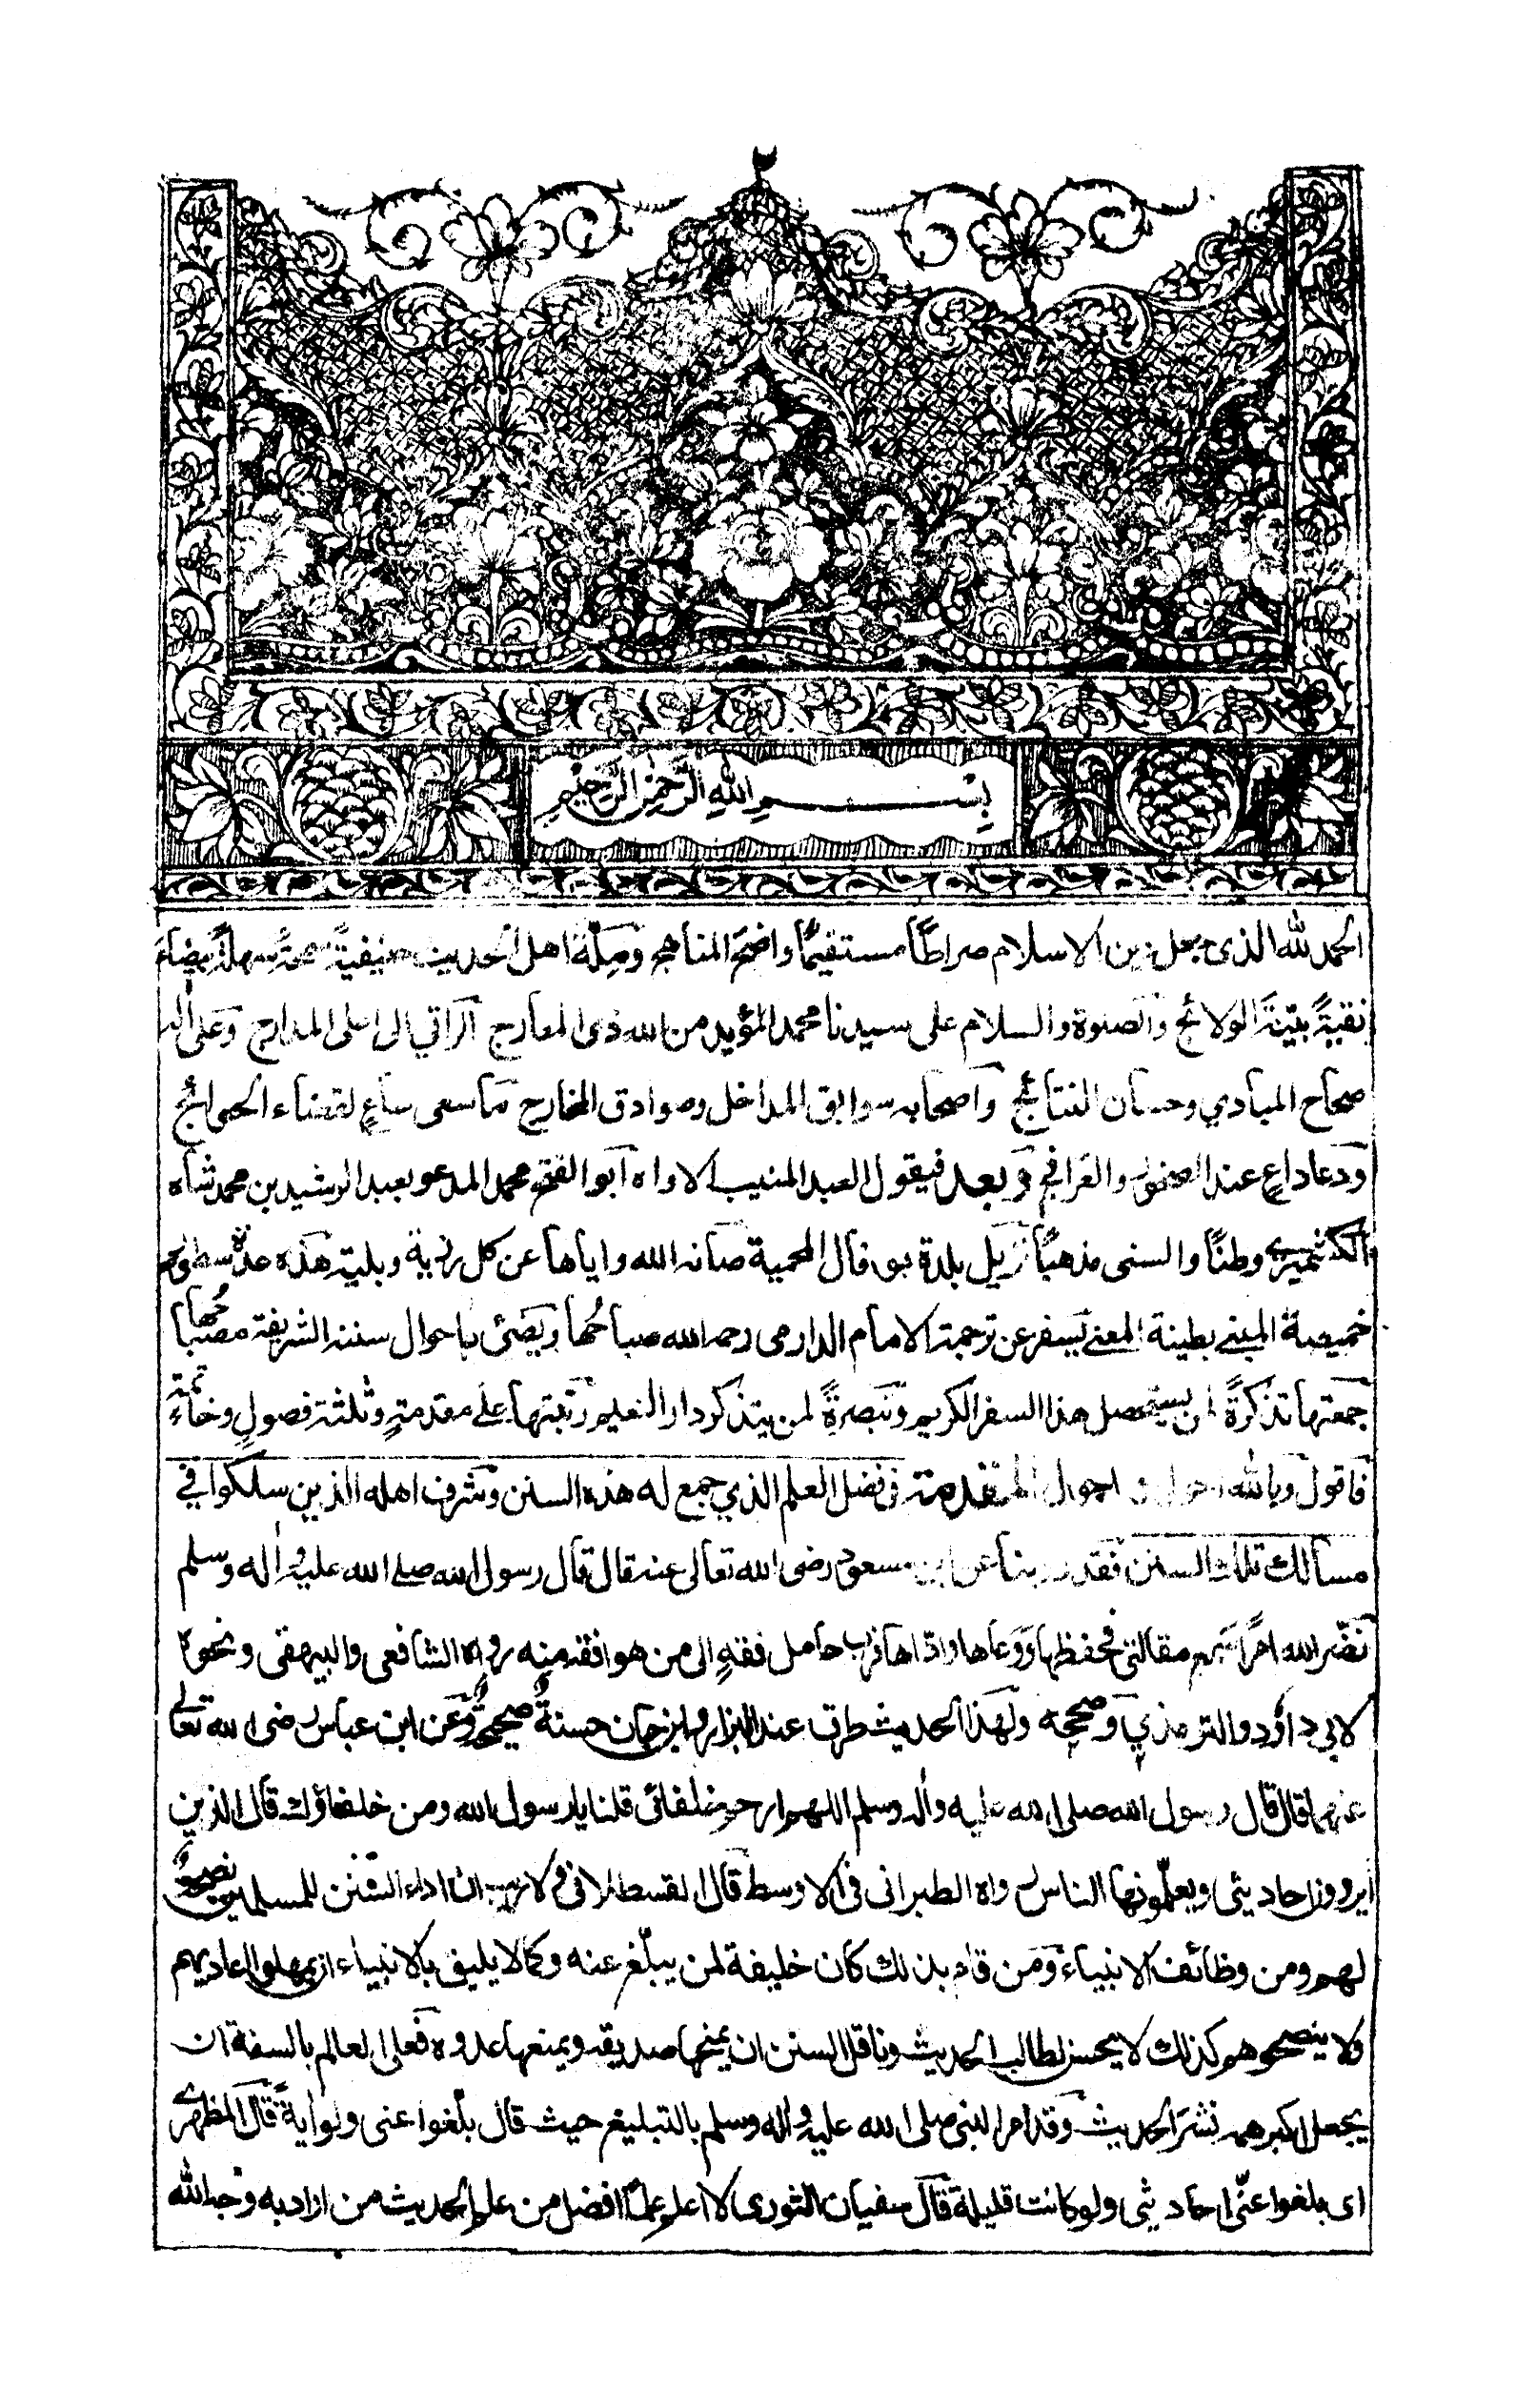 بِسْمِ اللهِ الرَّحْمٰنِ الرَّحِيْمِ
الحمد لله الذى جعل دين الاسلام صراطًا مستقيمًا واضحَ المناهج وملّة اهل الحديث حنيفيةً سمحةً سهلةً بيضاءَ
نقيةً بيّنةَ الولائج والصلوة والسلام على سيدنا محمد المؤيد من الله ذى المعارج الراقي الى اعلى المدارج وعلى اٰله
صحاح المبادي وحسان النتائج واصحابه سوابق المداخل وصوادق المخارج ما سعى ساعٍ لقضاء الحوائج
ودعا داعٍ عند والغرافج وبعد فيقول العبد المنيب الاواه ابو الفتح محمد المدعو بعبد الرشيد بن محمد شاه
الكشميرى وطنًا والسنى مذهبًا نزيل بلدة بوفال المحمية صانه الله واياها عن كل رزية وبلية هذه عدة سطور
خميصة المبنى بطينة المعنى يسفر عن ترجمة الامام الدارمى رحمه الله صباحُها ويضئ باحوال سننه الشريفة مصباحُها
جمعتها تذكرةً لمن يستحصل هذا السفر الكريم وتبصرةً لمن يتذكر دار النعيم رتبتها على مقدمةٍ وثلثة فصولٍ وخاتمة
فاقول وبالله احول المقدمة فى فضل العلم الذي جمع له هذه السنن وشرف اهله الذين سلكوا في
مسالك تلك السنن فقد روينا عن ابن مسعود رضى الله تعالى عنه قال قال رسول الله صلى الله عليه واٰله وسلم
نضّر الله امرًا سمع مقالتى فحفظها ووعاها واداها فرب حامل فقهٍ الى من هو افقه منه رواه الشافعى والبيهقى ونحوه
لابي داؤد والترمذي وصححه ولهذا الحديث طرق عند البزار وابن حبان حسنةٌ صحيحةٌ وعن ابن عباس رضى الله تعالى
عنهما قال قال رسول الله صلى الله عليه واٰله وسلم اللهم ارحم خلفائى قلنا يا رسول الله ومن خلفاؤك قال الذين
يروون احاديثى ويعلّمونها الناس رواه الطبرانى فى الاوسط قال القسطلانى ولا ريب ان اداء السنن للمسلمين نصيحةٌ
لهم ومن وظائف الانبياء ومن قام بذلك كان خليفة لمن يبلّغ عنه وكما لا يليق بالانبياء ان يهملوا اعاديهم
ولا ينصحوهم كذلك لا يحسن لطالب الحديث وناقل السنن ان يمنحها صديقه ويمنعها عدوه فعلى العالم بالسنة ان
يجعل اكبر همه نشرَ الحديث وقد امر النبى صلى الله عليه واٰله وسلم بالتبليغ حيث قال بلّغوا عنى ولو اٰيةً قال المظهرى
اى بلغوا عنّى احاديثى ولو كانت قليلة قال سفيان الثورى لا اعلم علمًا افضل من علم الحديث من اراد به وجه الله